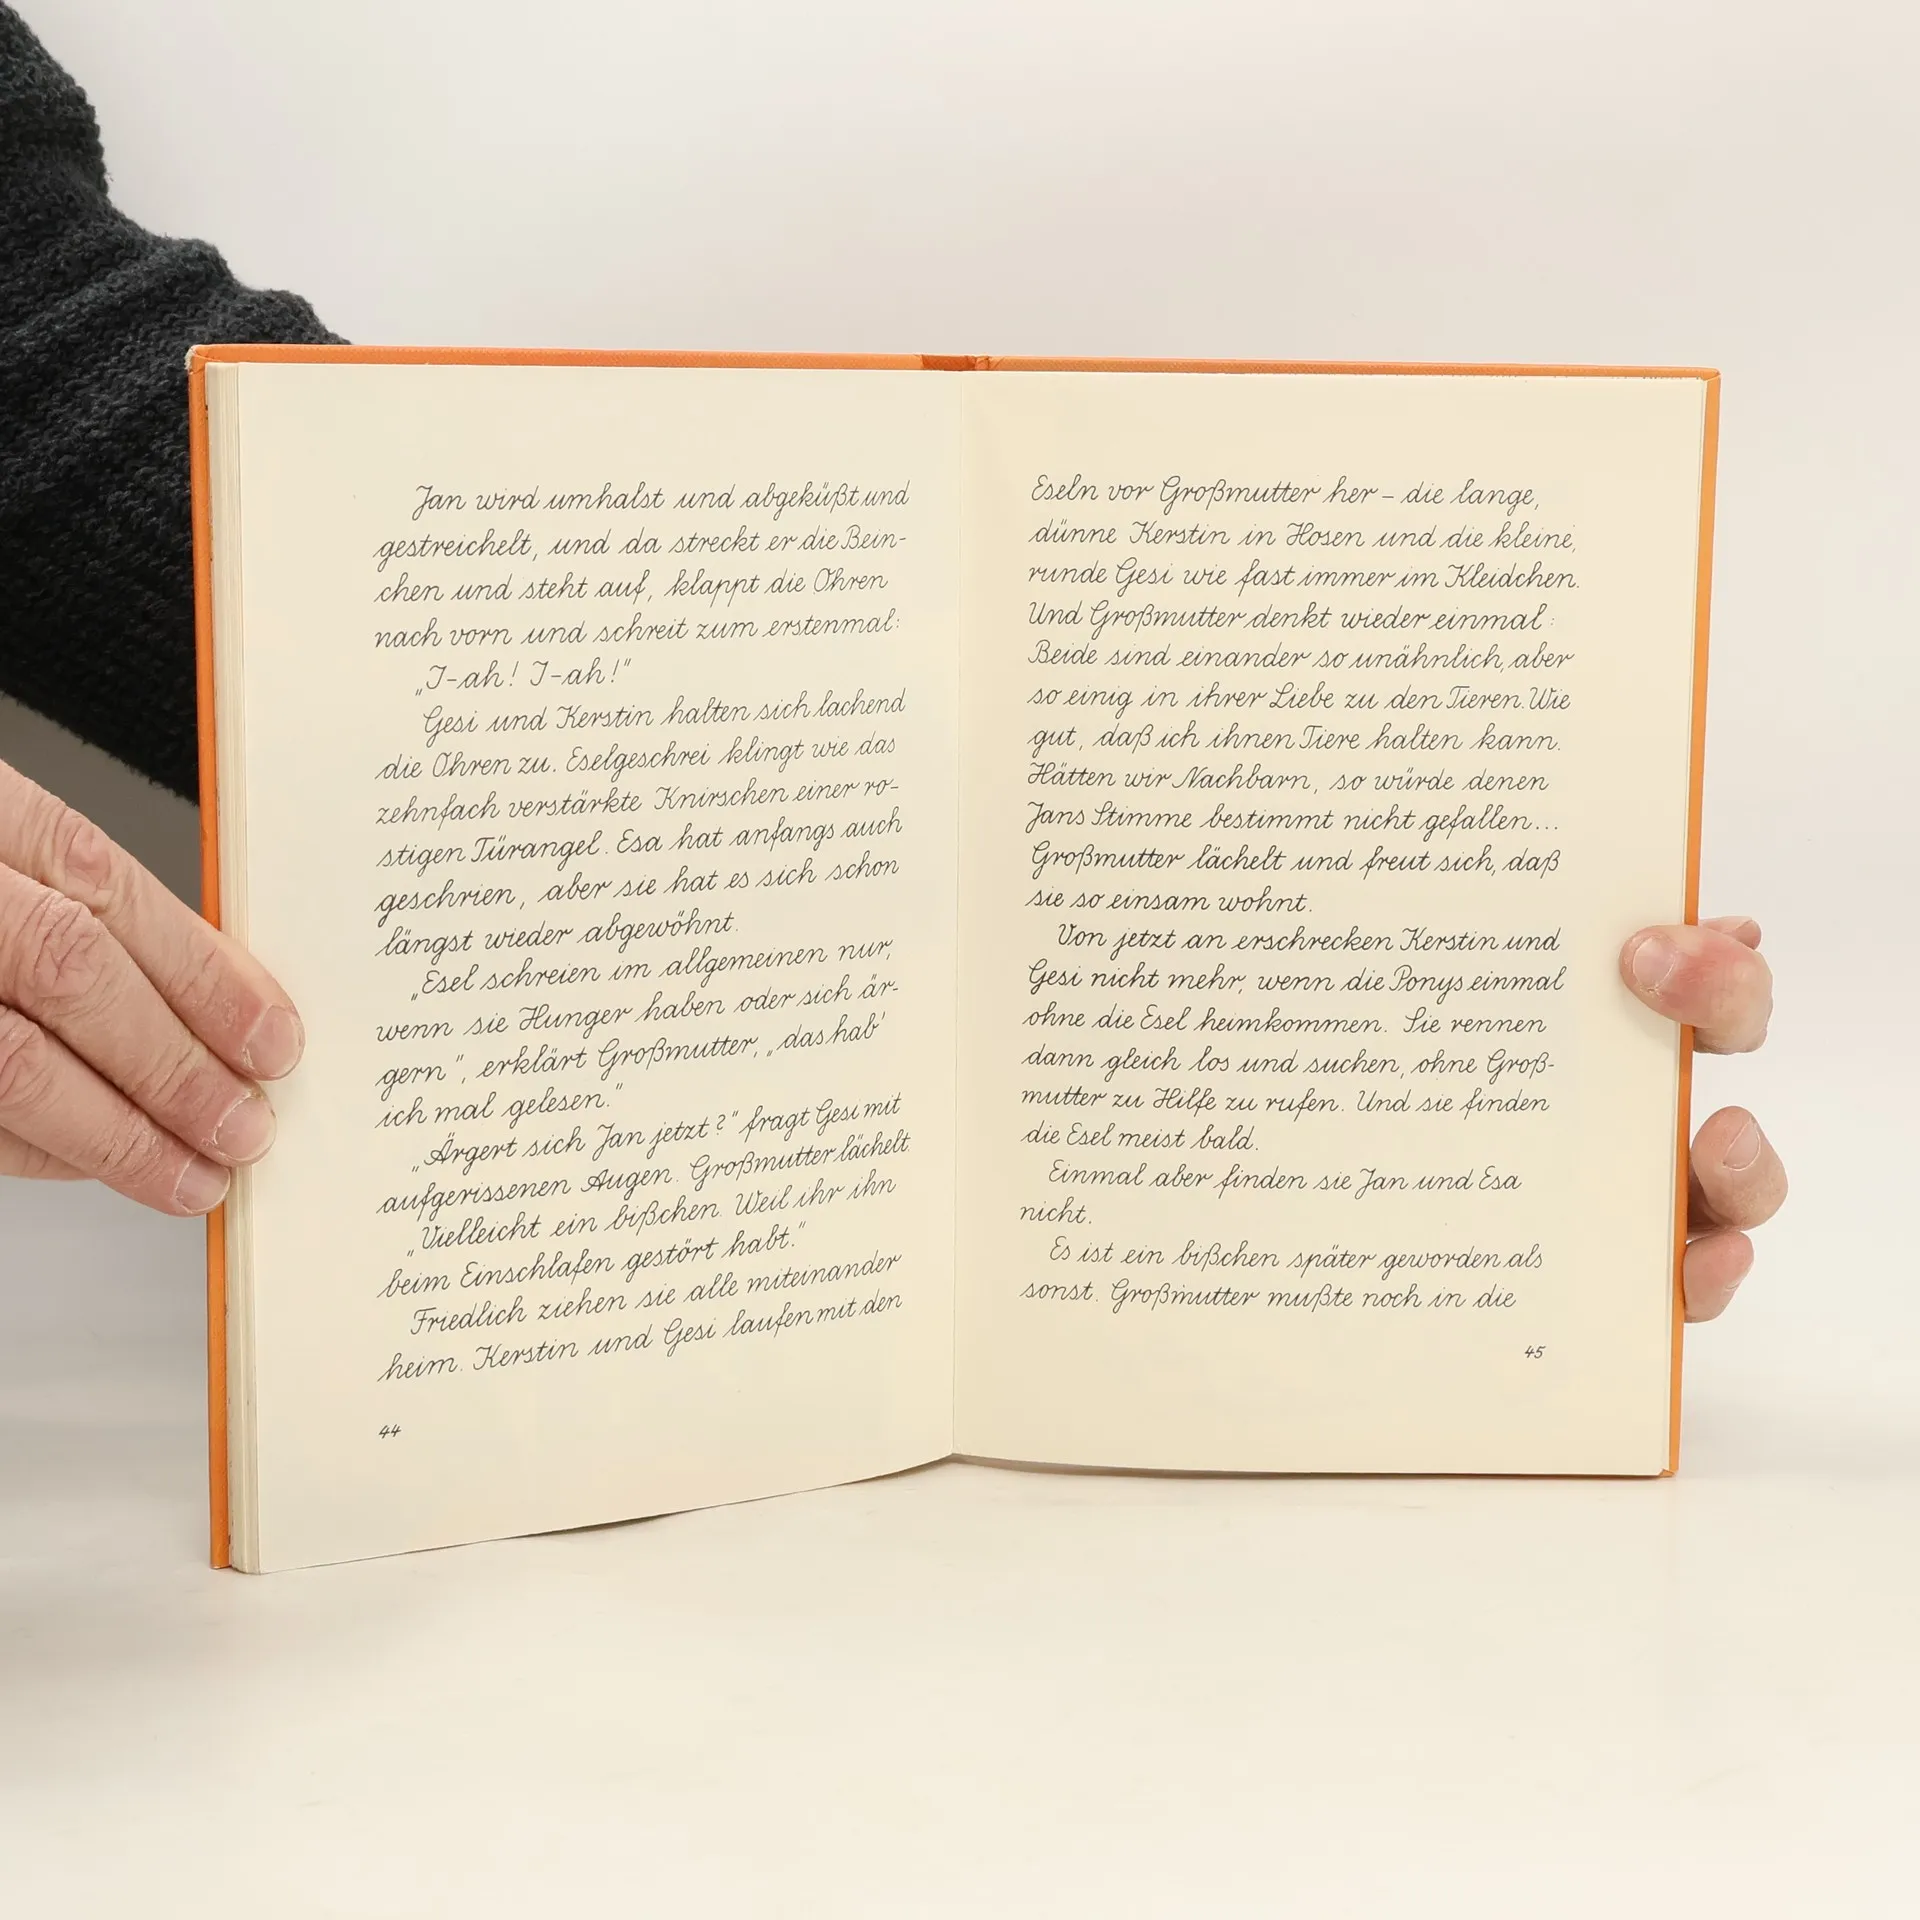 Jan wird umhalst und abgeküßt und
gestreichelt, und da streckt er die Bein-
chen und steht auf, klappt die Ohren
nach vorn und schreit zum erstenmal:
„I-ah! I-ah!“
Gesi und Kerstin halten sich lachend
die Ohren zu. Eselgeschrei klingt wie das
zehnfach verstärkte Knirschen einer ro-
stigen Türangel. Esa hat anfangs auch
geschrien, aber sie hat es sich schon
längst wieder abgewöhnt.
„Esel schreien im allgemeinen nur,
wenn sie Hunger haben oder sich är-
gern“, erklärt Großmutter, „das hab'
ich mal gelesen.“
„Ärgert sich Jan jetzt?“ fragt Gesi mit
aufgerissenen Augen. Großmutter lächelt.
„Vielleicht ein bißchen. Weil ihr ihn
beim Einschlafen gestört habt.“
Friedlich ziehen sie alle miteinander
heim. Kerstin und Gesi laufen mit den
44
Eseln vor Großmutter her – die lange,
dünne Kerstin in Hosen und die kleine,
runde Gesi wie fast immer im Kleidchen.
Und Großmutter denkt wieder einmal:
Beide sind einander so unähnlich, aber
so einig in ihrer Liebe zu den Tieren. Wie
gut, daß ich ihnen Tiere halten kann.
Hätten wir Nachbarn, so würde denen
Jans Stimme bestimmt nicht gefallen...
Großmutter lächelt und freut sich, daß
sie so einsam wohnt.
Von jetzt an erschrecken Kerstin und
Gesi nicht mehr, wenn die Ponys einmal
ohne die Esel heimkommen. Sie rennen
dann gleich los und suchen, ohne Groß-
mutter zu Hilfe zu rufen. Und sie finden
die Esel meist bald.
Einmal aber finden sie Jan und Esa
nicht.
Es ist ein bißchen später geworden als
sonst. Großmutter mußte noch in die
45